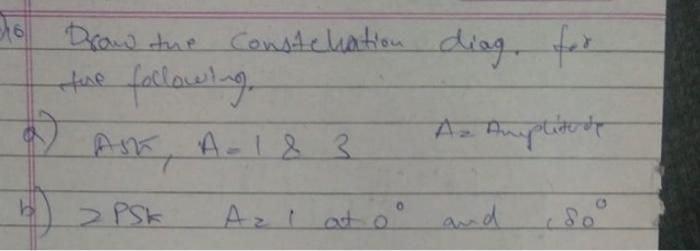 Draw the constellation diag. for
the following.
a) ASK, A=1 & 3 A= Amplitude
b) 2PSK A=1 at 0° and 180°